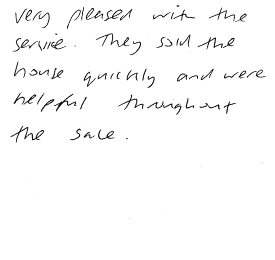 very pleased with the
service. They sold the
house quickly and were
helpful throughout
the sale.